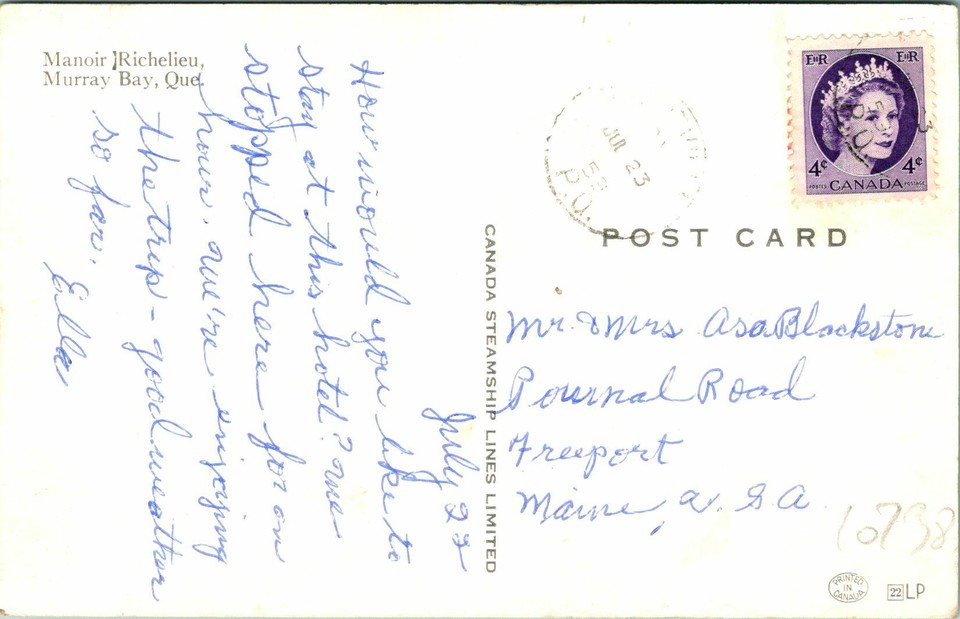 Manoir Richelieu,
Murray Bay, Que.
July 22
How would you like to
stay at this hotel? We
stopped here for an
hour. We're enjoying
the trip - good weather
so far.
Ella
CANADA STEAMSHIP LINES LIMITED
JUL 23
P.Q.
EIIR EIIR
4¢ 4¢
POSTES CANADA POSTAGE
POST CARD
Mr. & Mrs Asa Blackstone
Pournal Road
Freeport
Maine, U. S. A.
10738
PRINTED
IN
CANADA
22 LP